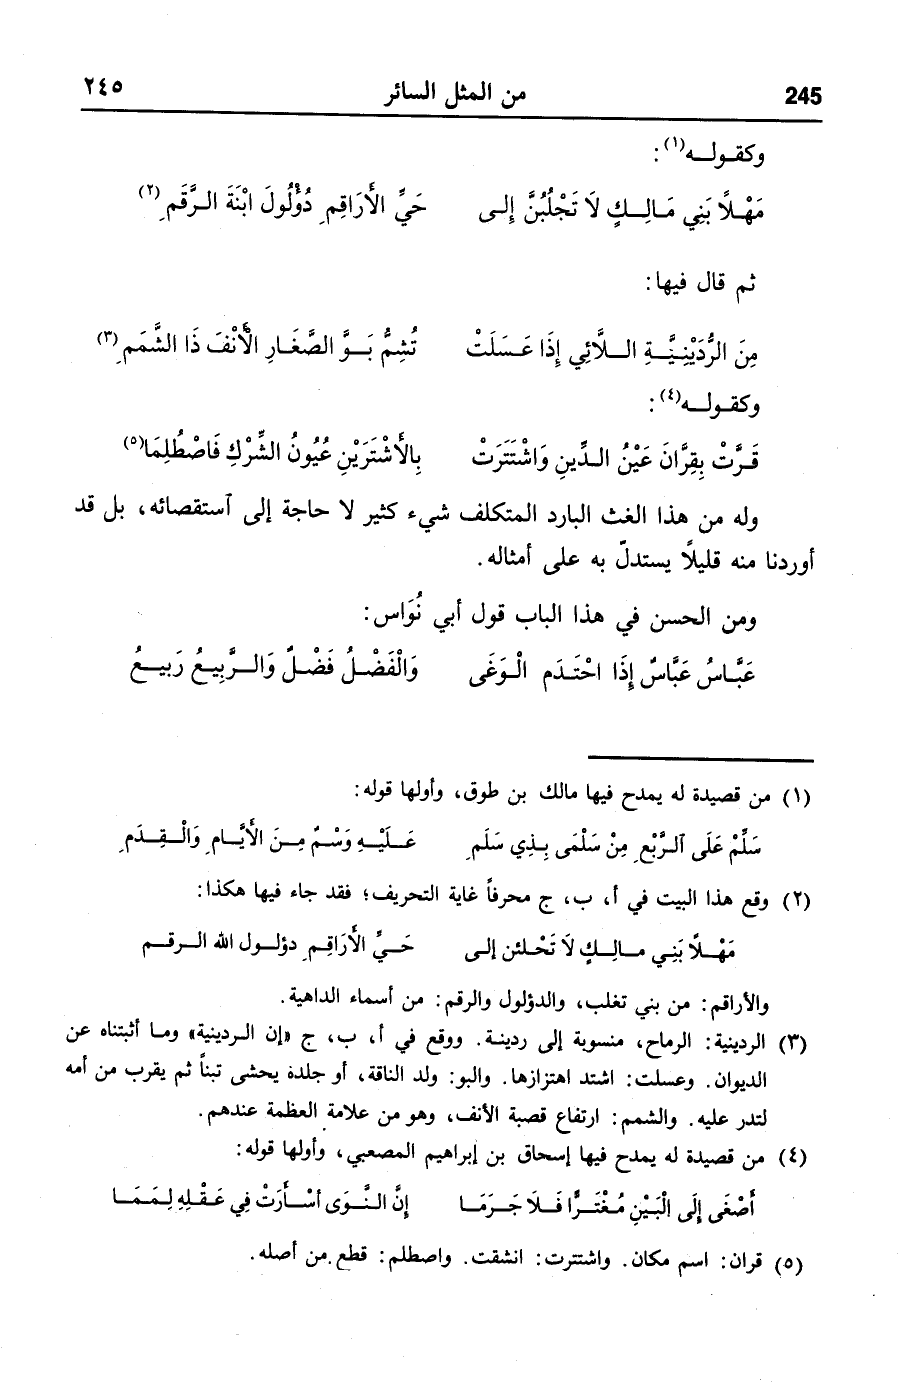 245 من المثل السائر ٢٤٥
وكقولـه(١):
مَهْـلًا بَنِي مَـالِـكٍ لَا تَجْلُبُنَّ إلى حَيِّ الأَرَاقِمِ دُؤْلُولَ ابْنَةَ الـرَّقَمِ(٢)
ثم قال فيها:
مِنَ الرُّدَيْنِيَّـةِ الـلَّائِي إِذَا عَـسَلَتْ تُشِمُّ بَـوَّ الصَّغَـارِ الْأَنْفَ ذَا الشَّمَمِ(٣)
وكقولـه(٤):
قَـرَّتْ بِقِرَّانَ عَيْنُ الـدِّينِ وَاشْتَتَرَتْ بِالأَشْتَرَيْنِ عُيُونُ الشِّرْكِ فَاصْطُلِمَا(٥)
وله من هذا الغث البارد المتكلف شيء كثير لا حاجة إلى آستقصائه، بل قد
أوردنا منه قليلاً يستدلّ به على أمثاله.
ومن الحسن في هذا الباب قول أبي نُوَاس:
عَبَّـاسُ عَبَّاسٌ إِذَا احْتَـدَمَ الْـوَغَى وَالْفَضْـلُ فَضْـلٌ وَالـرَّبِيـعُ رَبِيـعُ
(١) من قصيدة له يمدح فيها مالك بن طوق، وأولها قوله:
سَلِّمْ عَلَى آلـرَّبْعِ مِنْ سَلْمَى بِـذِي سَلَمِ عَـلَيْـهِ وَسْـمٌ مِـنَ الأَيَّـامِ وَالْـقِـدَمِ
(٢) وقع هذا البيت في أ، ب، ج محرفاً غاية التحريف؛ فقد جاء فيها هكذا:
مَهْـلًا بَنِـي مـالِـكٍ لَا تَحْـلئن إلى حَـيِّ الأَرَاقِـمِ دؤلـول الله الـرقـم
والأراقم: من بني تغلب، والدؤلول والرقم: من أسماء الداهية.
(٣) الردينية: الرماح، منسوبة إلى ردينة. ووقع في أ، ب، ج «إن الـردينية» ومـا أثبتناه عن
الديوان. وعسلت: اشتد اهتزازها. والبو: ولد الناقة، أو جلده يحشى تبناً ثم يقرب من أمه
لتدر عليه. والشمم: ارتفاع قصبة الأنف، وهو من علامة العظمة عندهم.
(٤) من قصيدة له يمدح فيها إسحاق بن إبراهيم المصعبي، وأولها قوله:
أَصْغَى إِلَى الْبَيْنِ مُغْتَـرًّا فَـلَا جَـرَمَـا إِنَّ الـنَّـوَى أَسْـأَرَتْ فِي عَـقْلِهِ لِـمَـمَـا
(٥) قران: اسم مكان. واشتترت: انشقت. واصطلم: قطع من أصله.